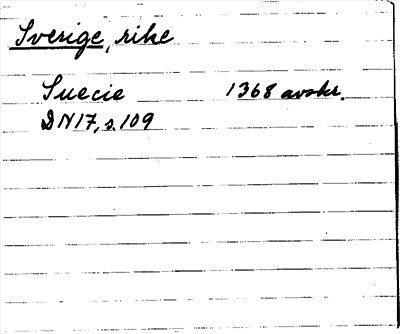 Sverige, rike
Suecie 1368 avskr.
DN17, s. 109